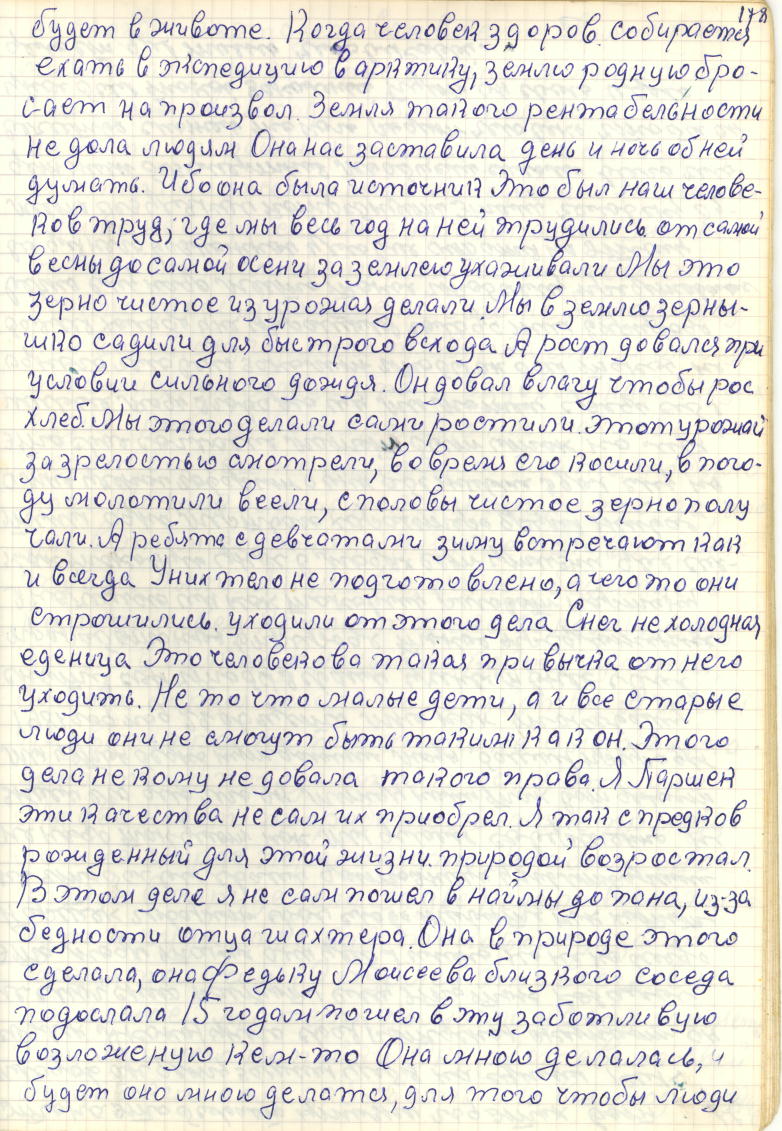 178
будет в животе. Когда человек здоров. собирается
ехать в экспедицию в арктику, землю родную бро-
сает на произвол. Земля такого рентабельности
не дола людям Она нас заставила день и ночь об ней
думать. Ибо она была источник Это был наш челове-
ков труд, где мы весь год на ней трудились от самой
весны до самой осени за землею ухаживали Мы это
зерно чистое из урожая делали. Мы в землю зерны-
шко садили для быстрого всхода. А рост довался при
условии сильного дождя. Он довал влагу чтобы рос
хлеб. Мы этого делали сами ростили. этот урожай
за зрелостью смотрели, во время его косили, в пого-
ду молотили веели, с половы чистое зерно полу
чали. А ребята с девчатами зиму встречают как
и всегда У них тело не подготовлено, а чего то они
строшились. уходили от этого дела Снег не холодная
еденица Это человекова такая привычка от него
уходить. Не то что малые дети, а и все старые
люди они не смогут быть такими как он. Этого
дела не кому не довала такого права. Я Паршек
эти качества не сам их приобрел. Я так с предков
рожденный для этой жизни. природой возростал.
В этом деле я не сам пошел в наймы до пана, из-за
бедности отца шахтера. Она в природе этого
сделала, она Федьку Моисеева близкого соседа
подослала 15 годам пошел в эту заботливую
возложеную кем-то Она мною делалась, и
будет оно мною делатся, для того чтобы люди